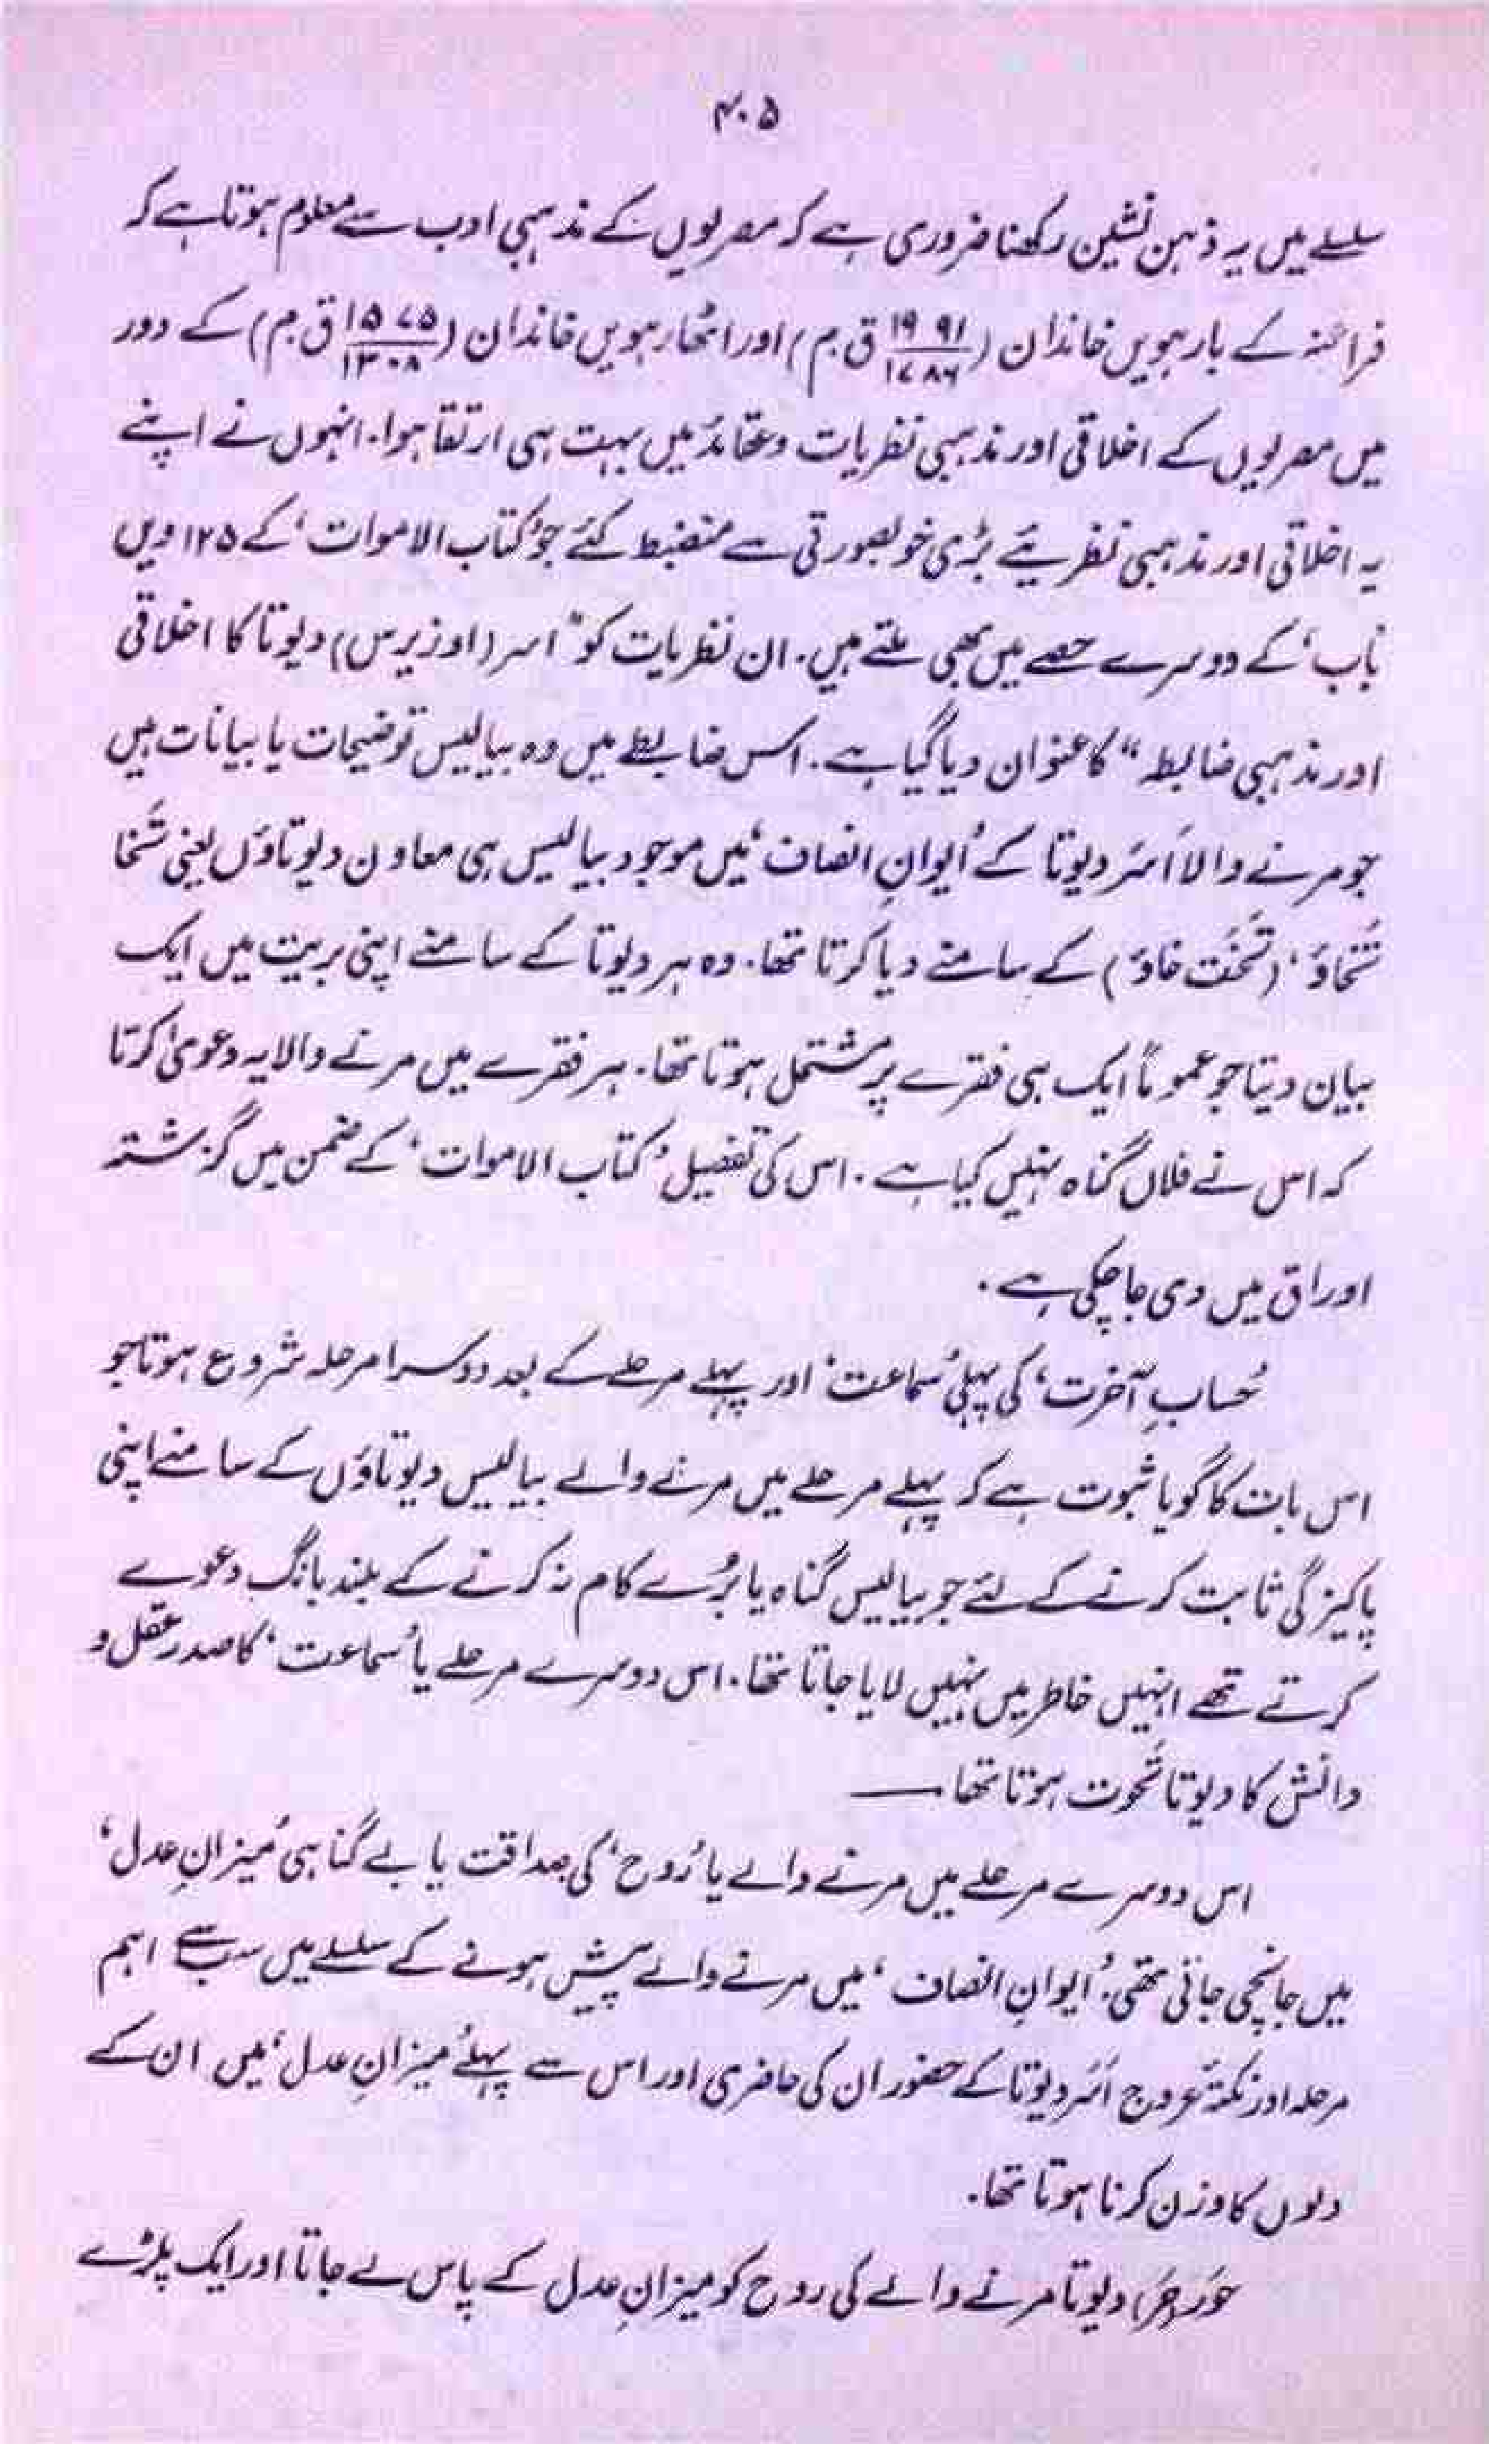 ۴۰۵
سلسلے میں یہ ذہن نشین رکھنا ضروری ہے کہ مصریوں کے مذہبی ادب سے معلوم ہوتا ہے کہ
فراعنہ کے بارہویں خاندان (۱۹۹۱/۱۷۸۶ ق م) اور اٹھارہویں خاندان (۱۵۷۵/۱۳۰۸ ق م) کے دور
میں مصریوں کے اخلاقی اور مذہبی نظریات و عقائد میں بہت ہی ارتقا ہوا۔ انہوں نے اپنے
یہ اخلاقی اور مذہبی نظریئے بڑی خوبصورتی سے منضبط کئے جو ’کتاب الاموات‘ کے ۱۲۵ ویں
’باب‘ کے دوسرے حصے میں بھی ملتے ہیں۔ ان نظریات کو ”اسر (اوزیرس) دیوتا کا اخلاقی
اور مذہبی ضابطہ“ کا عنوان دیا گیا ہے۔ اس ضابطے میں وہ بیالیس توضیحات یا بیانات ہیں
جو مرنے والا اَسَر دیوتا کے ’ایوانِ انصاف‘ میں موجود بیالیس ہی معاون دیوتاؤں یعنی تنخا
’تنخاؤ‘ (تَخُت خاؤ) کے سامنے دیا کرتا تھا۔ وہ ہر دیوتا کے سامنے اپنی بریت میں ایک
بیان دیتا جو عموماً ایک ہی فقرے پر مشتمل ہوتا تھا۔ ہر فقرے میں مرنے والا یہ دعویٰ کرتا
کہ اس نے فلاں گناہ نہیں کیا ہے۔ اس کی تفصیل ’کتاب الاموات‘ کے ضمن میں گزشتہ
اوراق میں دی جا چکی ہے۔
’حسابِ آخرت‘ کی پہلی ’سماعت‘ اور پہلے مرحلے کے بعد دوسرا مرحلہ شروع ہوتا جو
اس بات کا گویا ثبوت ہے کہ پہلے مرحلے میں مرنے والے بیالیس دیوتاؤں کے سامنے اپنی
پاکیزگی ثابت کرنے کے لئے جو بیالیس گناہ یا بُرے کام نہ کرنے کے بلند بانگ دعوے
کرتے تھے انہیں خاطر میں نہیں لایا جاتا تھا۔ اس دوسرے مرحلے یا ’سماعت‘ کا صدر عقل و
دانش کا دیوتا تَحوت ہوتا تھا ——
اس دوسرے مرحلے میں مرنے والے یا ’رُوح‘ کی صداقت یا بے گناہی ’میزانِ عدل‘
میں جانچی جاتی تھی۔ ’ایوانِ انصاف‘ میں مرنے والے پیش ہونے کے سلسلے میں سب سے اہم
مرحلہ اور نکتۂ عروج اَسَر دیوتا کے حضور ان کی حاضری اور اس سے پہلے ’میزانِ عدل‘ میں ان کے
دلوں کا وزن کرنا ہوتا تھا۔
حَورَ (حَر) دیوتا مرنے والے کی روح کو میزانِ عدل کے پاس لے جاتا اور ایک پلڑے